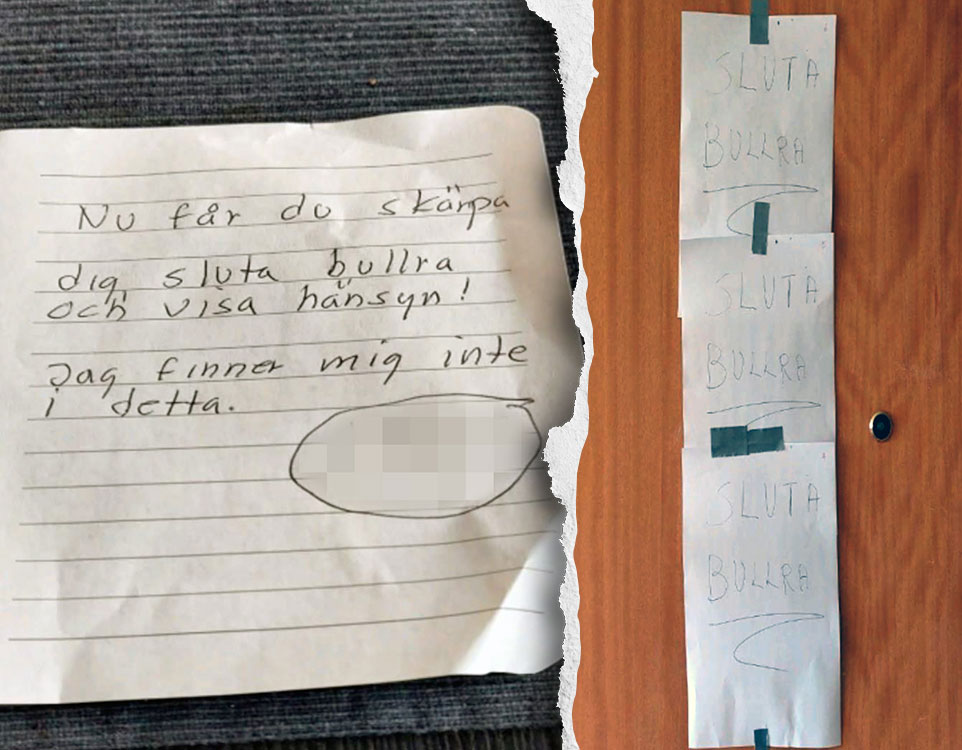 Nu får du skärpa
dig, sluta bullra
och visa hänsyn!
Jag finner mig inte
i detta.
SLUTA
BULLRA
SLUTA
BULLRA
SLUTA
BULLRA